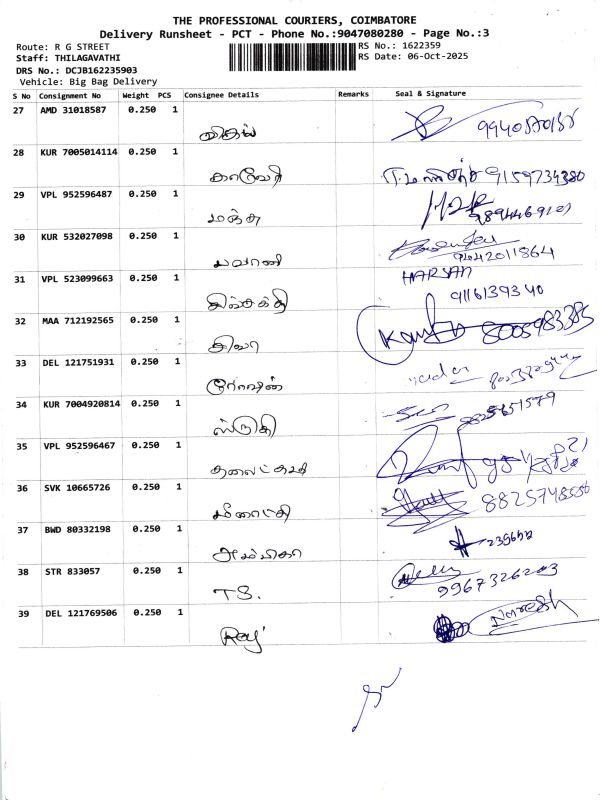 THE PROFESSIONAL COURIERS, COIMBATORE
Delivery Runsheet - PCT - Phone No.:9047080280 - Page No.:3
Route: R G STREET RS No.: 1622359
Staff: THILAGAVATHI RS Date: 06-Oct-2025
DRS No.: DCJB162235903
Vehicle: Big Bag Delivery
S No Consignment No Weight PCS Consignee Details Remarks Seal & Signature
27 AMD 31018587 0.250 1
28 KUR 7005014114 0.250 1
காவேரி 9159734380
29 VPL 952596487 0.250 1
மஞ்சு
30 KUR 532027098 0.250 1
பவானி 9642011864
31 VPL 523099663 0.250 1 HARSAN
9116139340
32 MAA 712192565 0.250 1
சிவா 8005983385
33 DEL 121751931 0.250 1
34 KUR 7004920814 0.250 1
ஸ்ருதி
35 VPL 952596467 0.250 1
36 SVK 10665726 0.250 1
மீனாட்சி
37 BWD 80332198 0.250 1
அம்பிகா
38 STR 833057 0.250 1
T.S. 9967326203
39 DEL 121769506 0.250 1
Raj Naresh